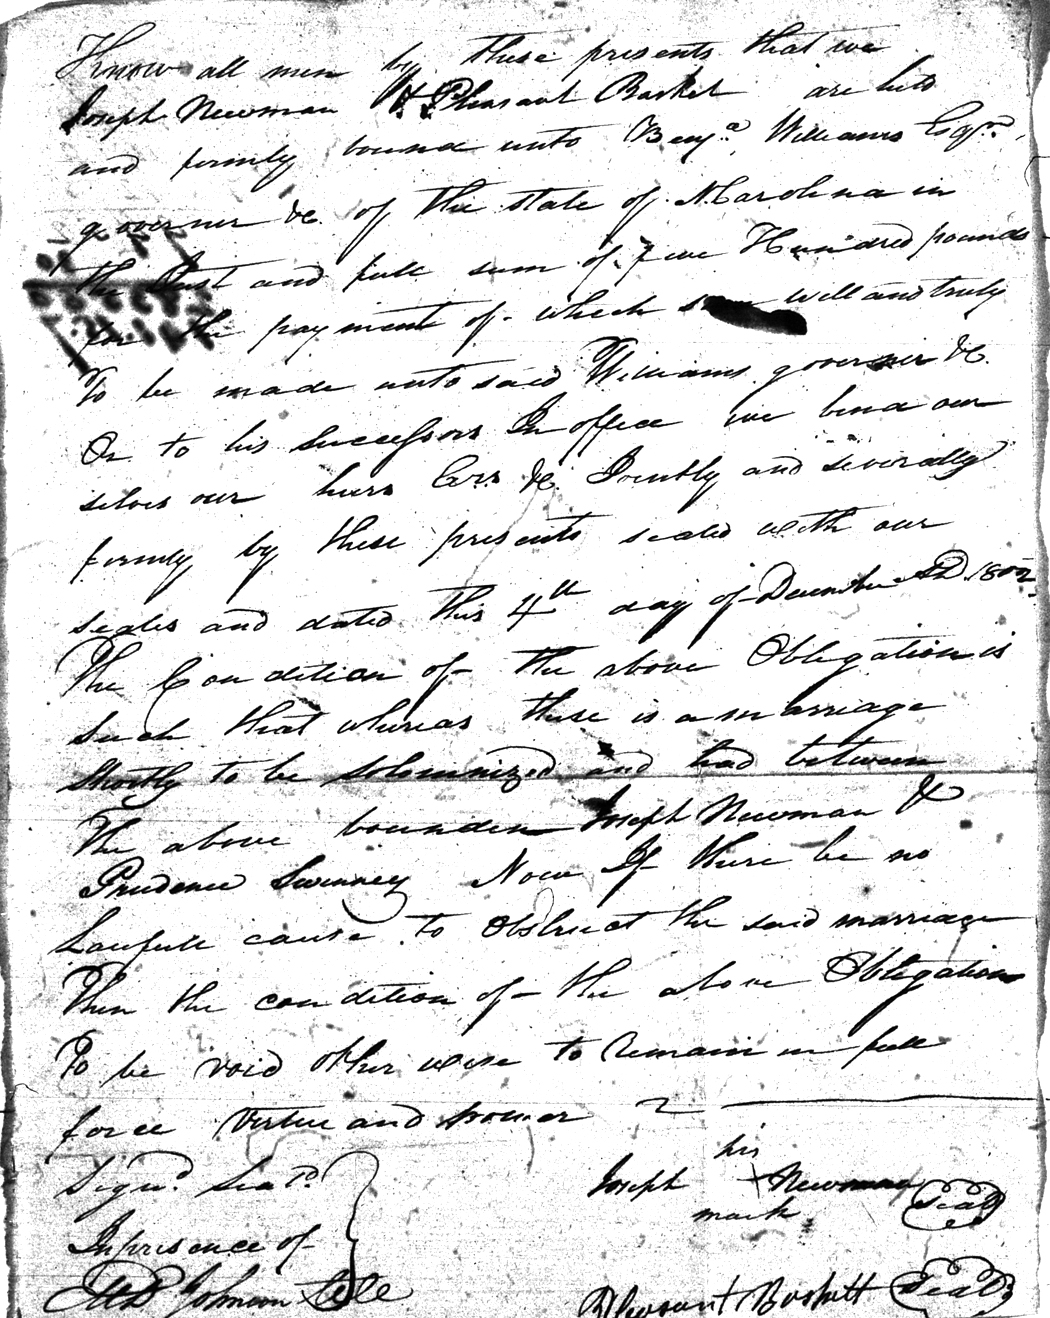 Know all men by these presents that we
Joseph Newman & Pleasant Basket are held
and firmly bound unto Benja. Williams Esqr.
governer &c. of the state of N.Carolina in
the Just and full sum of five Hundred pounds
for the payment of which will and truly
To be made unto said Williams governer &c.
Or to his Successors In office we bind our
selves our heirs &c. Jointly and severally
firmly by these presents sealed with our
seales and dated this 4th day of December AD 1802
The Condition of the above Obligation is
Such that whereas there is a marriage
Shortly to be solemnized and had between
The above bounden Joseph Newman &
Prudence Swinney Now If there be no
Lawfull cause to Obstruct the said marriage
Then the condition of the above Obligation
To be void other wise to Remain in full
force Virtue and power
Signd. Seald.
his
Joseph X Newman Seal
mark
In presence of
Johnson
Pleasant Baskett Seal